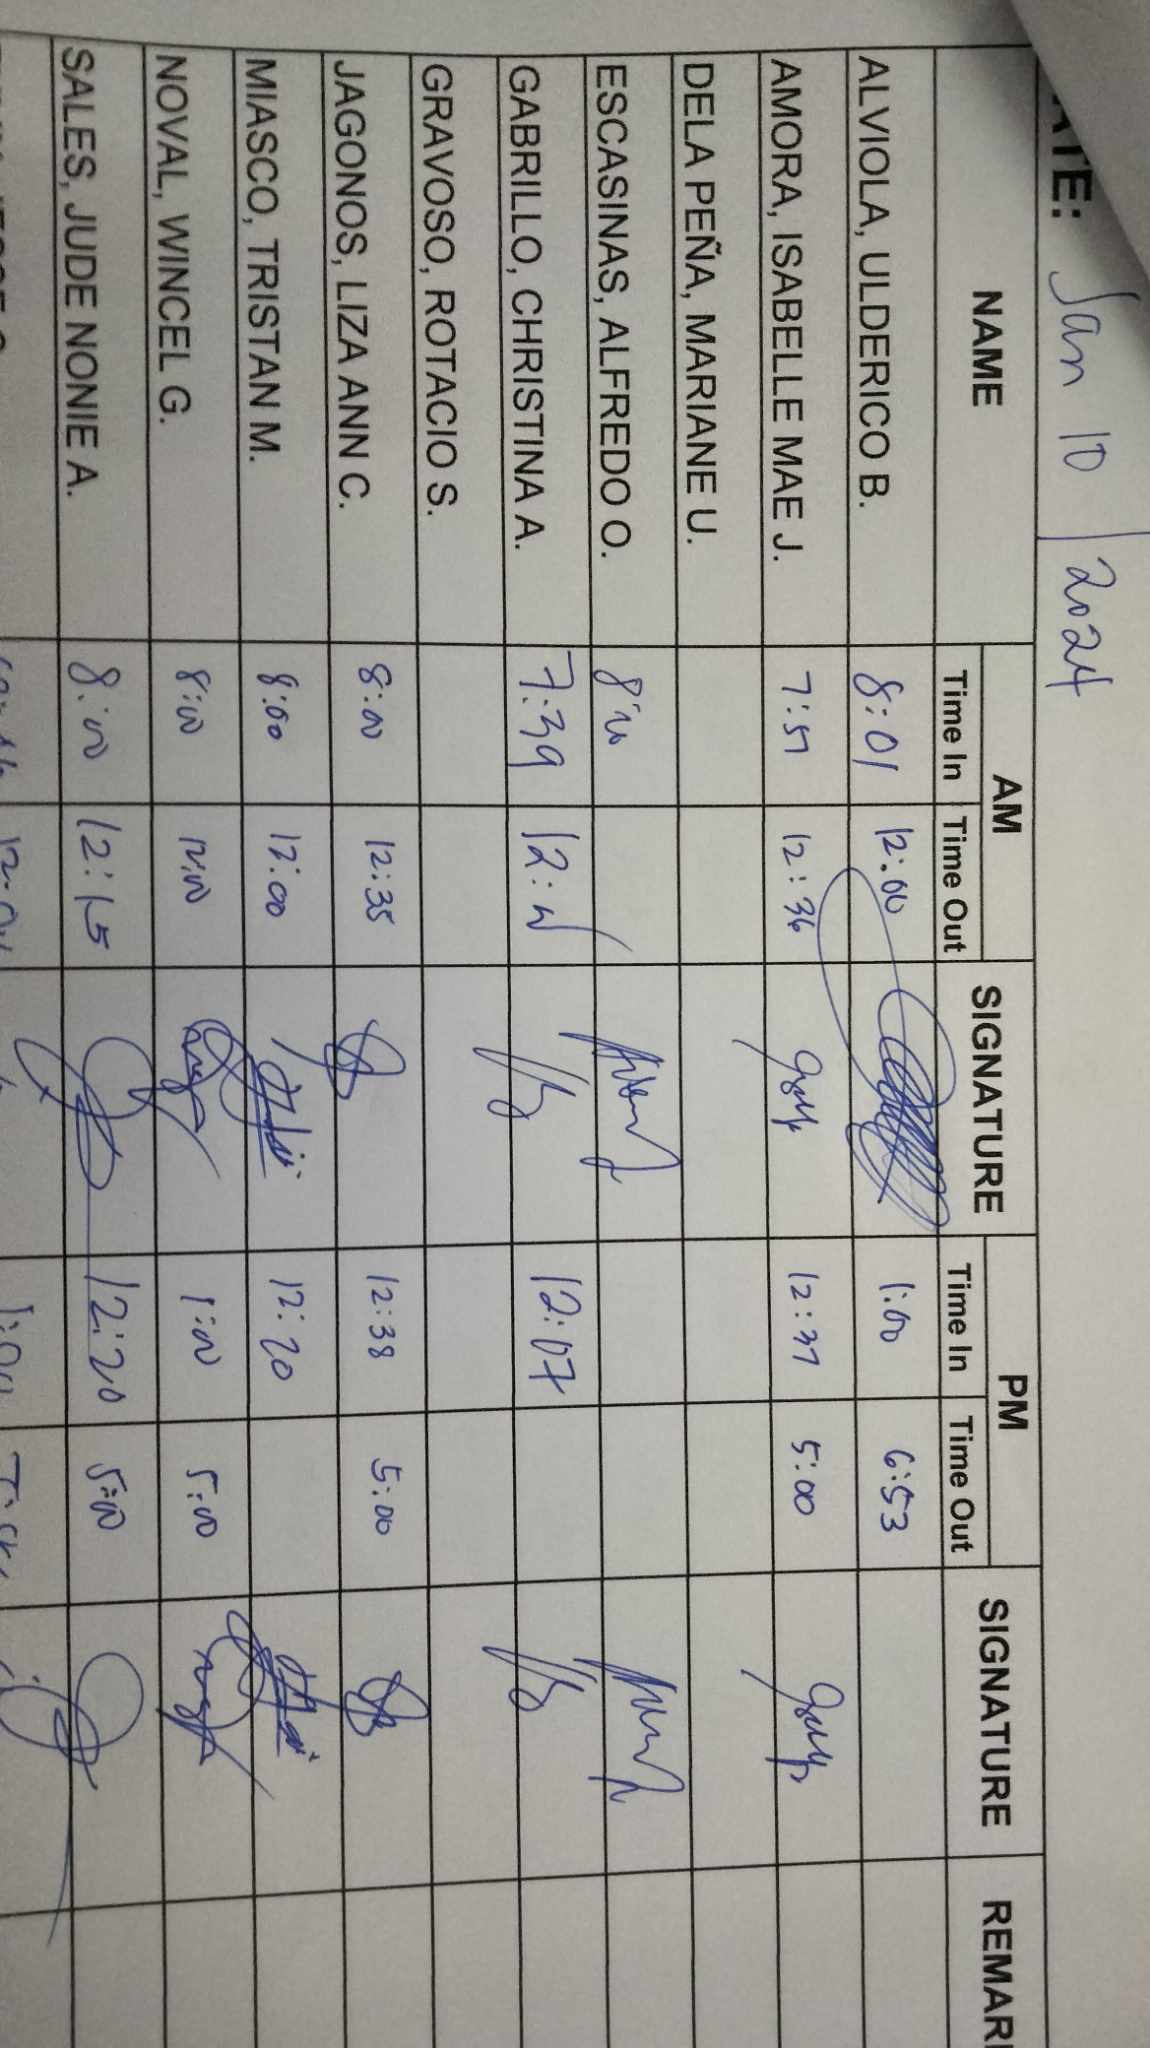 ATE: Jan 10 / 2024
NAME AM SIGNATURE PM SIGNATURE REMAR
Time In Time Out Time In Time Out
ALVIOLA, ULDERICO B. 8:01 12:00 1:00 6:53
AMORA, ISABELLE MAE J. 7:51 12:36 12:37 5:00
DELA PEÑA, MARIANE U.
ESCASINAS, ALFREDO O.
GABRILLO, CHRISTINA A. 7:39 12:07
GRAVOSO, ROTACIO S.
JAGONOS, LIZA ANN C. 8:00 12:35 12:38 5:00
MIASCO, TRISTAN M. 8:00 12:00 12:20
NOVAL, WINCEL G. 8:00 12:00 1:00 5:00
SALES, JUDE NONIE A. 8:00 12:15 12:20 5:00